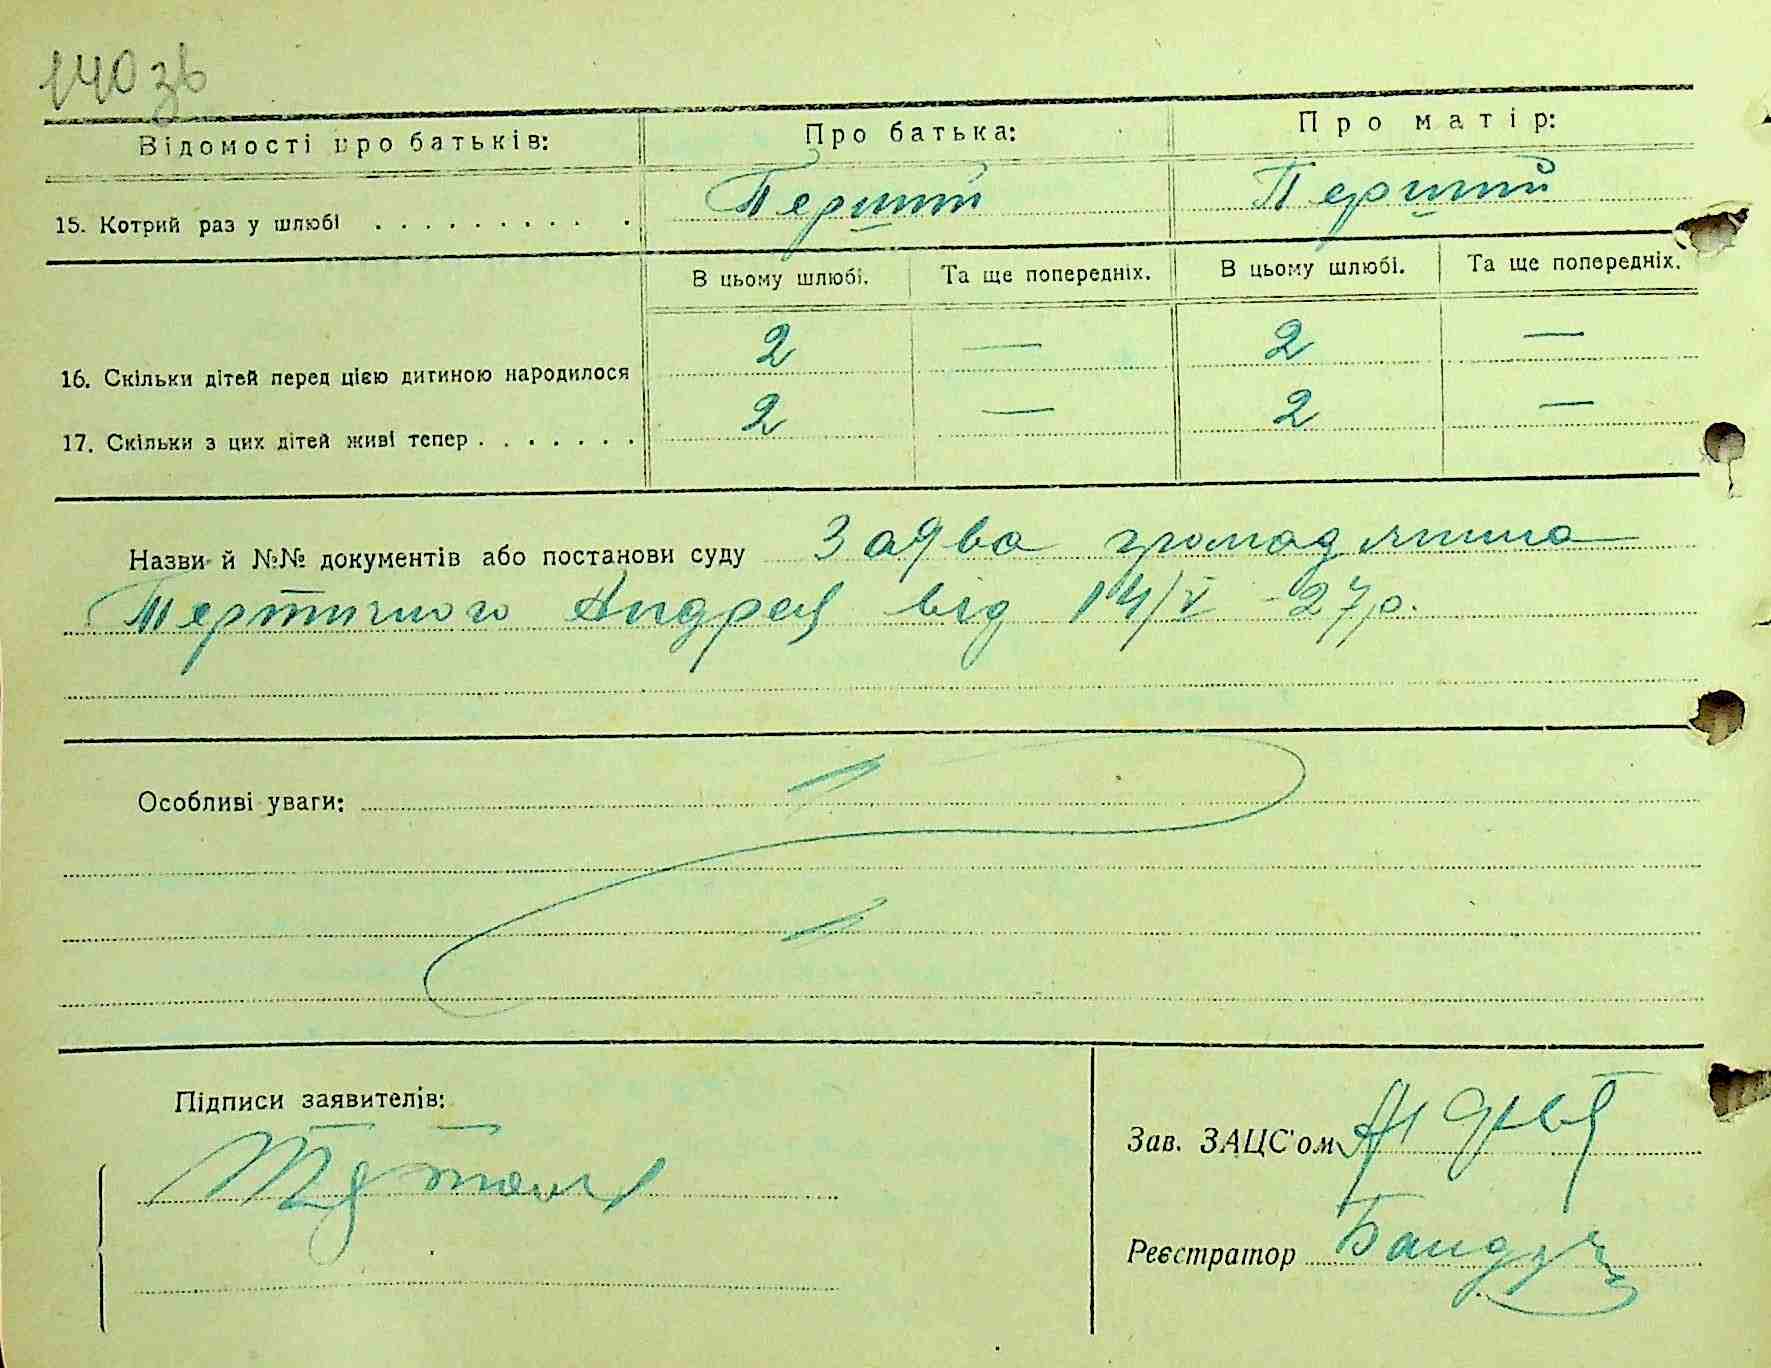 140 зв
Відомості про батьків: Про батька: Про матір:
15. Котрий раз у шлюбі . . . . . . . . . . Перший Перший
В цьому шлюбі. Та ще попередніх. В цьому шлюбі. Та ще попередніх.
16. Скільки дітей перед цією дитиною народилося 2 — 2 —
17. Скільки з цих дітей живі тепер . . . . . . . 2 — 2 —
Назви й №№ документів або постанови суду Заява громадянина
Тертичного Андрея від 14/V -27р.
Особливі уваги:
Підписи заявителів:
Зав. ЗАЦС'ом
Реєстратор